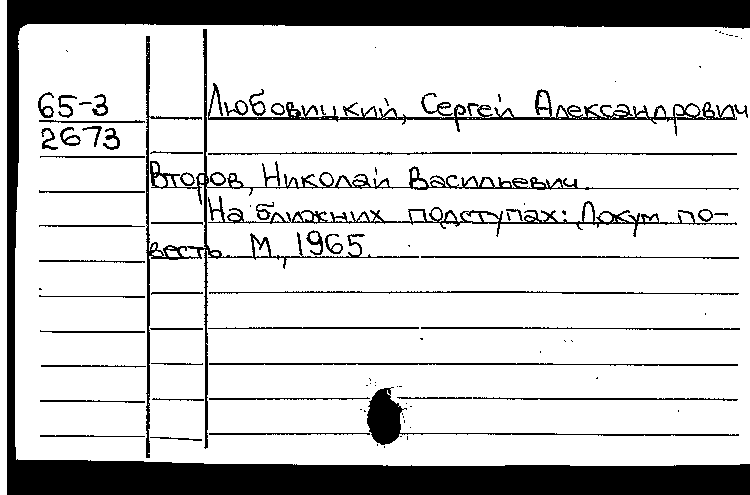 65-3
Любовицкий, Сергей Александрович
2673
Второв, Николай Васильевич.
На ближних подступах: Докум. по-
весть. М., 1965.